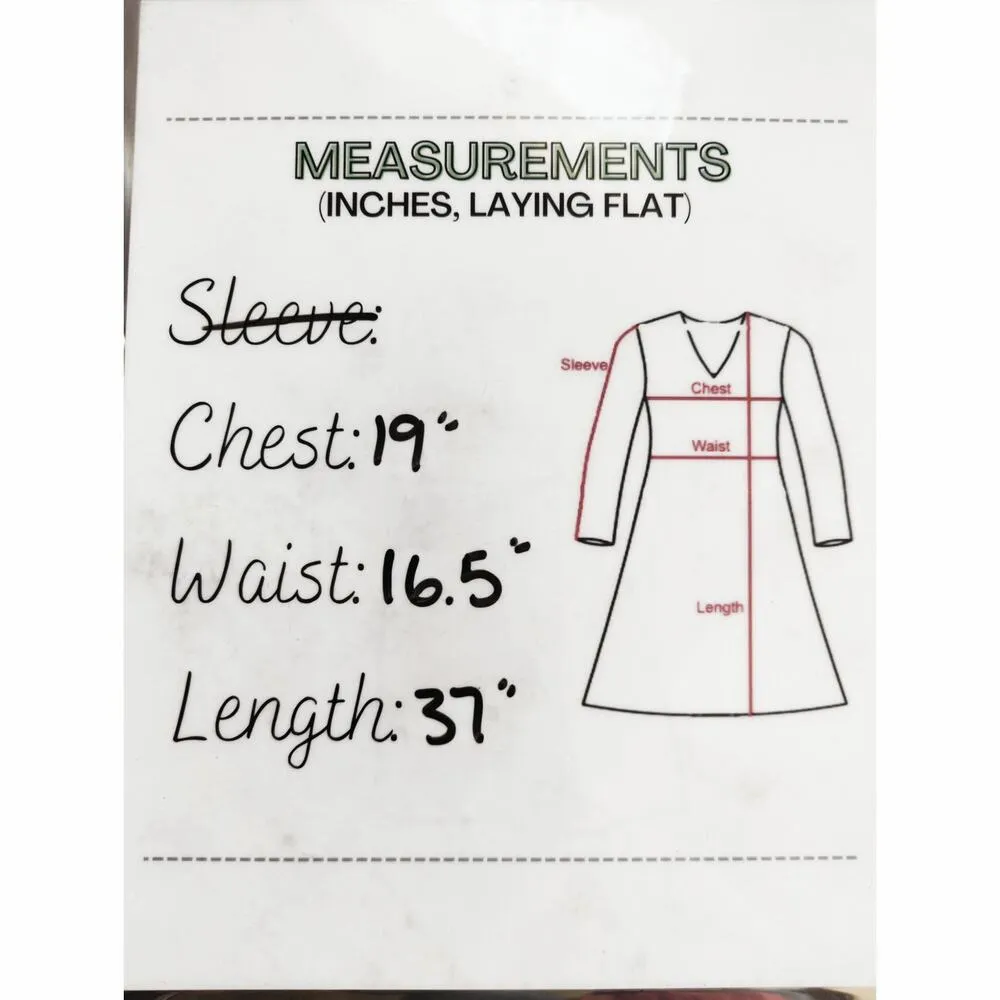 MEASUREMENTS
(INCHES, LAYING FLAT)
Sleeve:
Chest: 19"
Waist: 16.5"
Length: 37"
Sleeve
Chest
Waist
Length